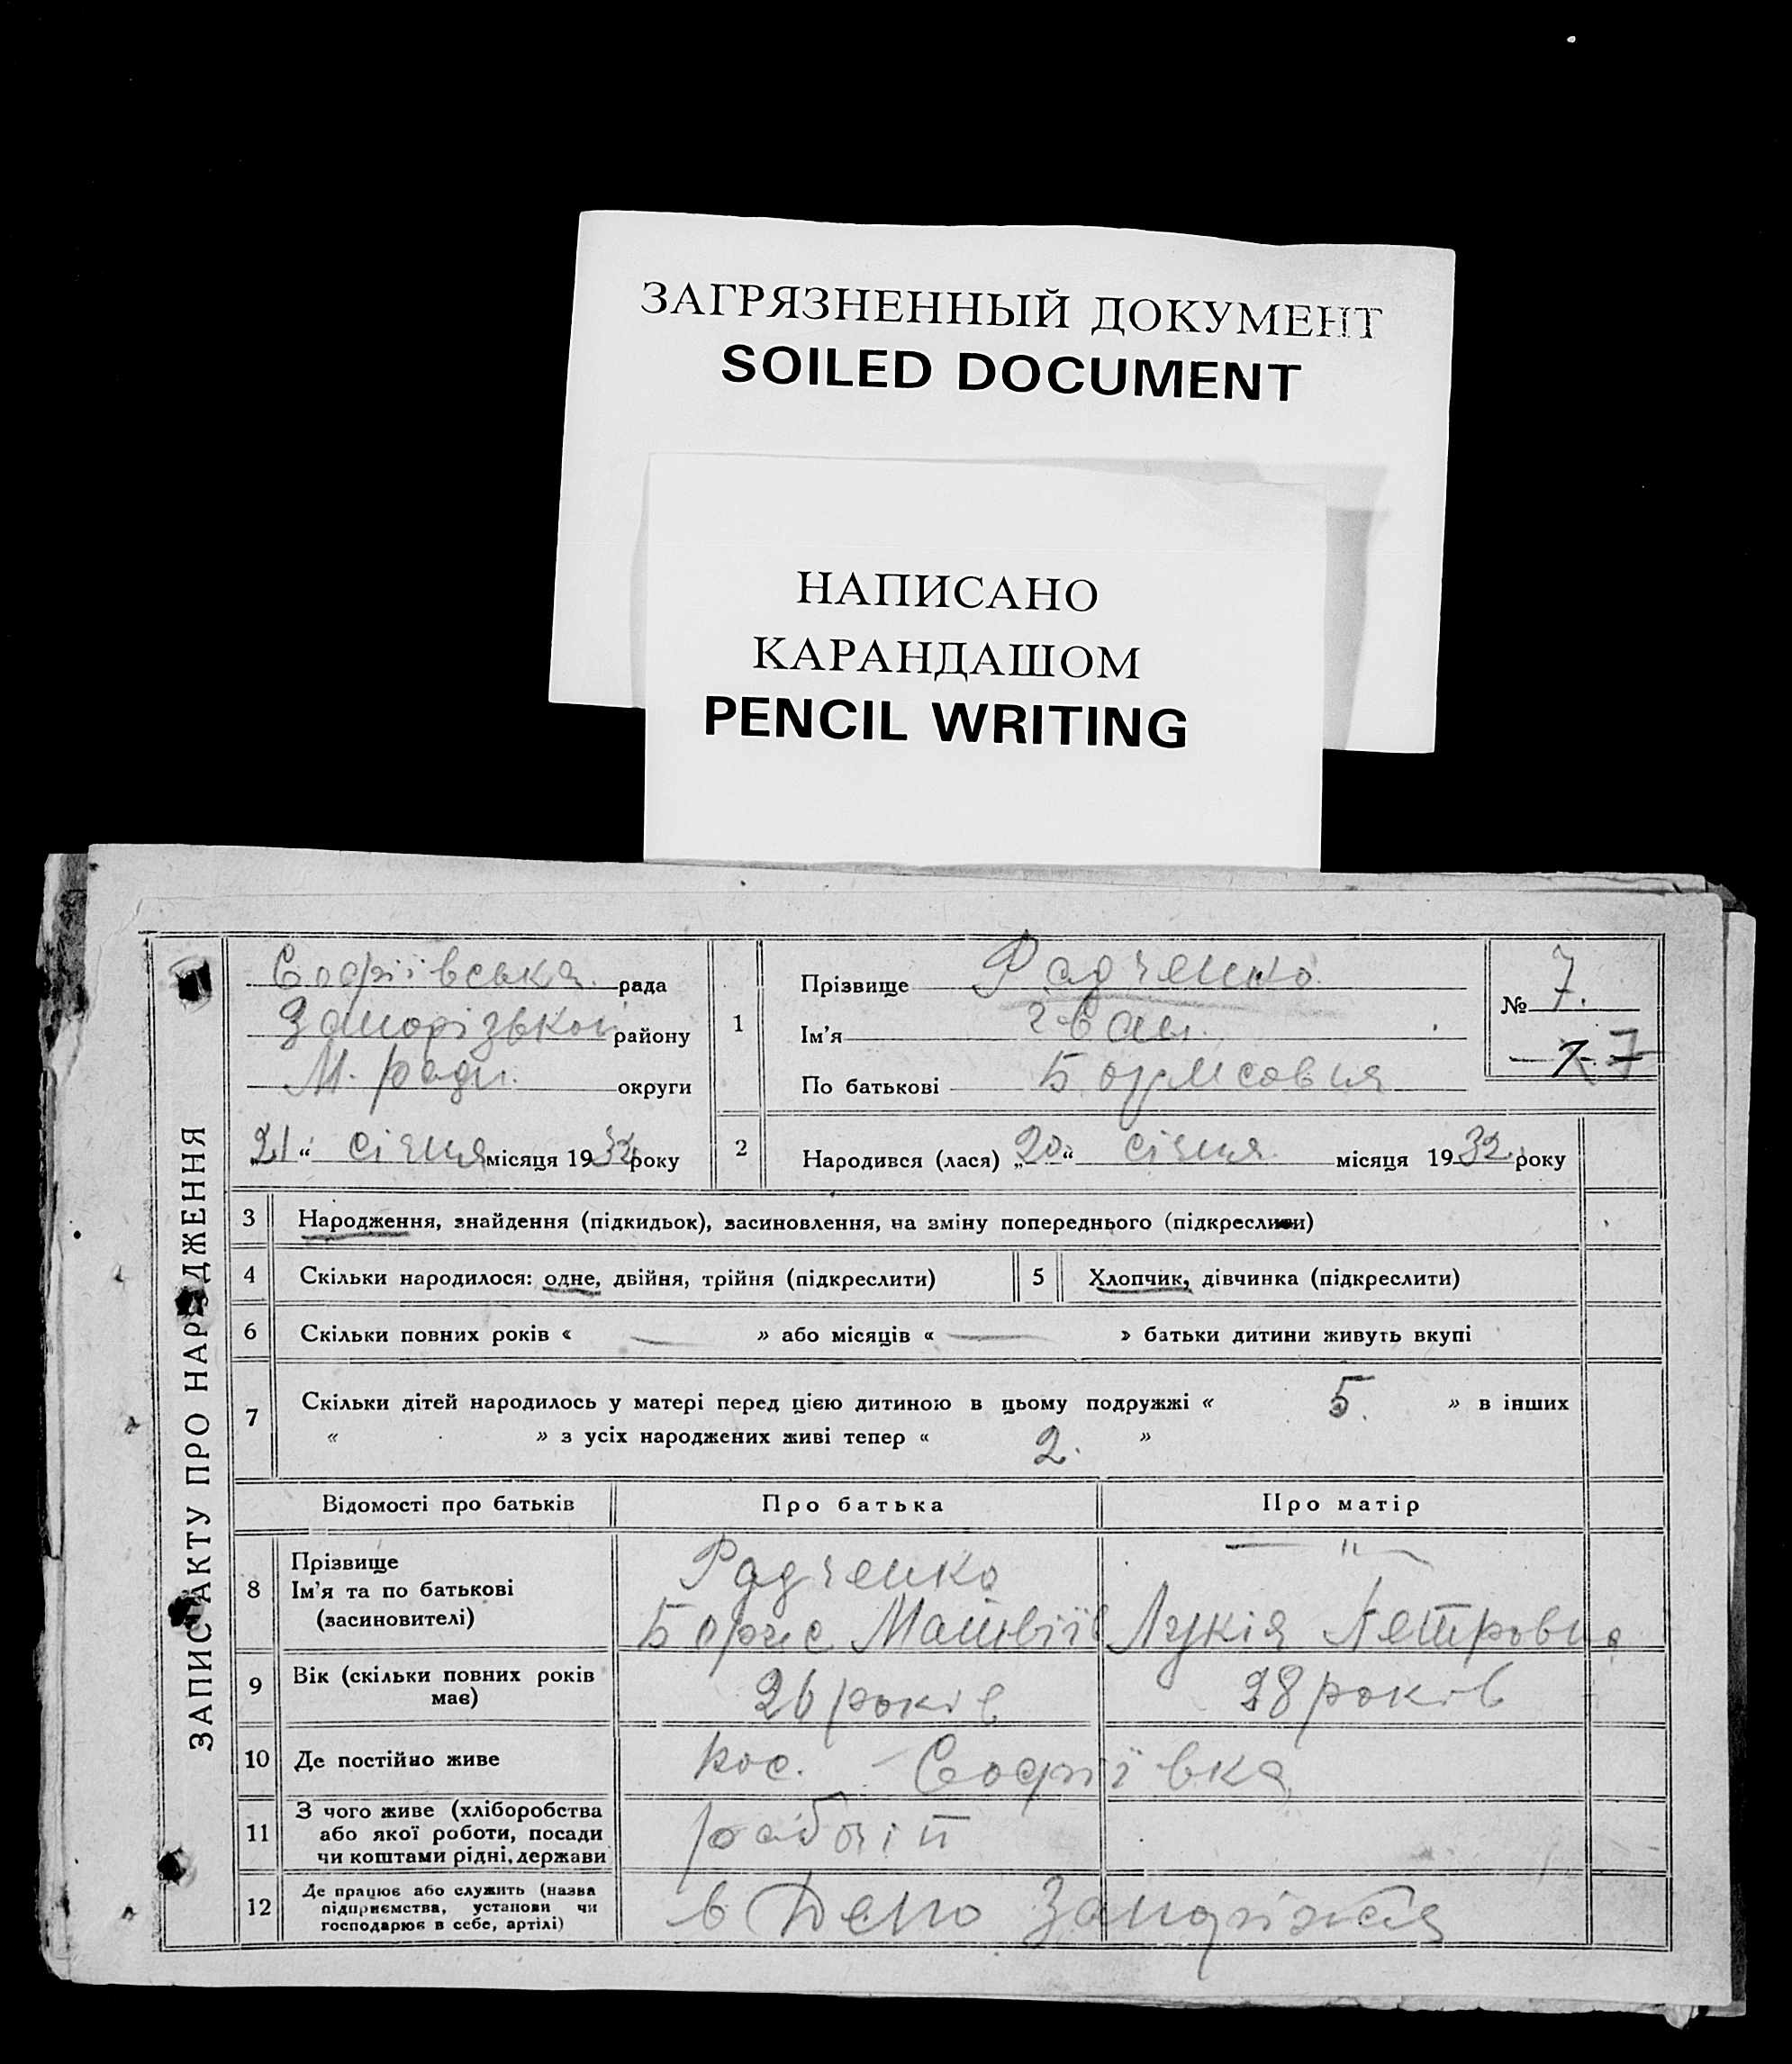 ЗАГРЯЗНЕННЫЙ ДОКУМЕНТ
SOILED DOCUMENT
НАПИСАНО
КАРАНДАШОМ
PENCIL WRITING
ЗАПИС АКТУ ПРО НАРОДЖЕННЯ
Софіївська рада
Запорізької району
М. ради округи
21 “ січня місяця 1932 року
1
Прізвище Радченко
Ім'я Іван
По батькові Борисович
№ 7.
7
2 Народився (лася) „20“ січня місяця 1932 року
3 Народження, знайдення (підкидьок), засиновлення, на зміну попереднього (підкреслити)
4 Скільки народилося: одне, двійня, трійня (підкреслити) 5 Хлопчик, дівчинка (підкреслити)
6 Скільки повних років « — » або місяців « — » батьки дитини живуть вкупі
7 Скільки дітей народилось у матері перед цією дитиною в цьому подружжі « 5. » в інших
« » з усіх народжених живі тепер « 2. »
Відомості про батьків Про батька Про матір
8 Прізвище
Ім'я та по батькові
(засиновителі)
Радченко — " —
Борис Матвіїв Лукія Петровна
9 Вік (скільки повних років
має)
26 років 28 років
10 Де постійно живе пос. Софіївка
11 З чого живе (хліборобства
або якої роботи, посади
чи коштами рідні, держави
робочій
12 Де працює або служить (назва
підприємства, установи чи
господарює в себе, артілі)
в Депо Запоріжжя